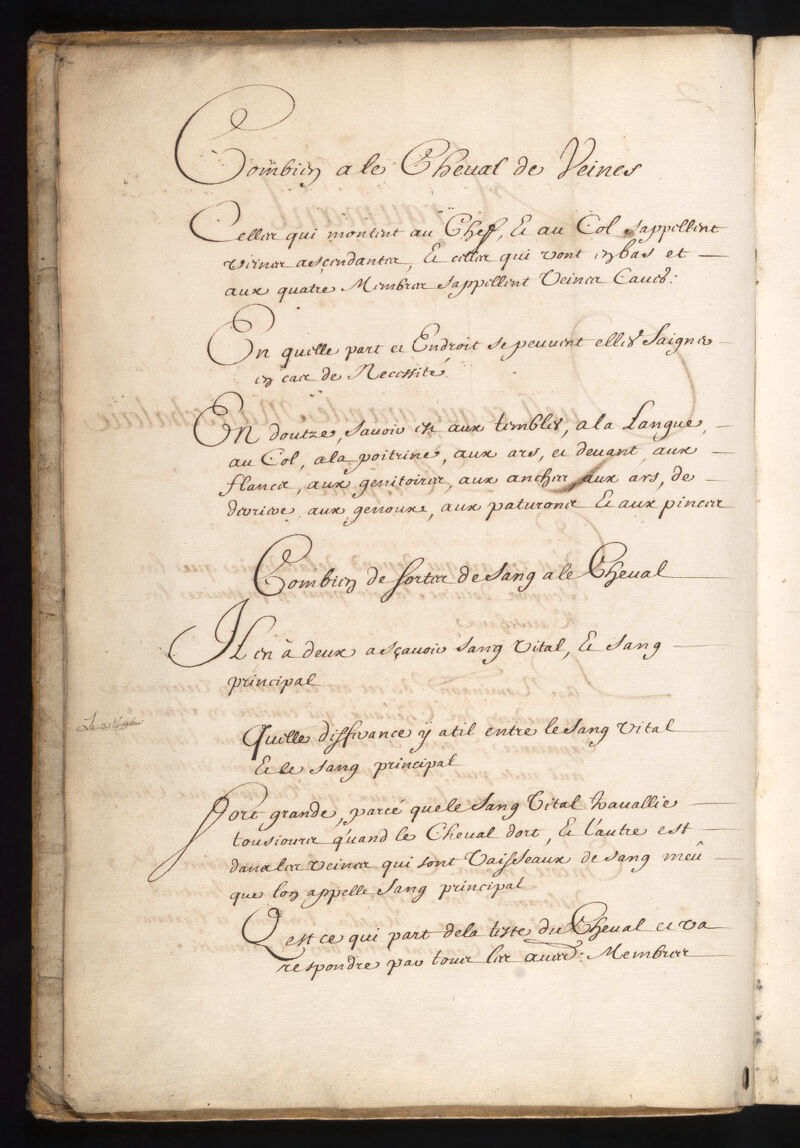 Combien a le Cheual de Veines
Celles qui montent au Chef, & au Col s'appellent
veines ascendantes, & celles qui vont en bas et
aux quatre Membres s'appellent Veines Caues:
En quelle part et Endroit se peuuent elles Saigner
en cas de Necessité
EN doutze, savoir est aux temples, a la Langue,
au Col, a la poitrine, aux ars, et deuant, aux
flancs, aux genitoires, aux anches, aux ars, de
derriere aux genoux, aux paturons & aux pinces
Combien de sortes de sang a le Cheual
IL en à deux asçavoir sang Vital, & sang
principal
Quelle differance ÿ atil entre le sang vital
& le sang principal
fort grande, parcé que le sang Vital trauallie
tousiours q'uand le Cheval dort, & l'autre est
dans les veines qui sont Vaisseaux de sang meû
que lon appelle sang principal
Qest ce qui part dela teste du Cheval et va
respondre par tous les Membres